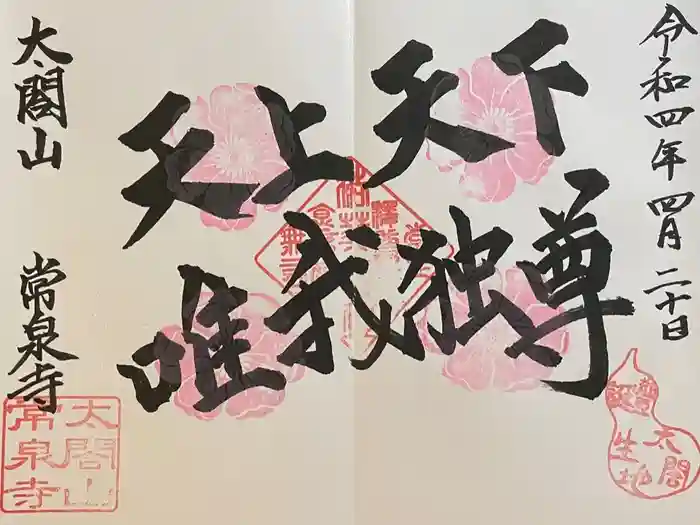 令和四年四月二十日
天上天下
唯我独尊
太閤山
常泉寺
太閤山
常泉寺
豐太閤
誕生地